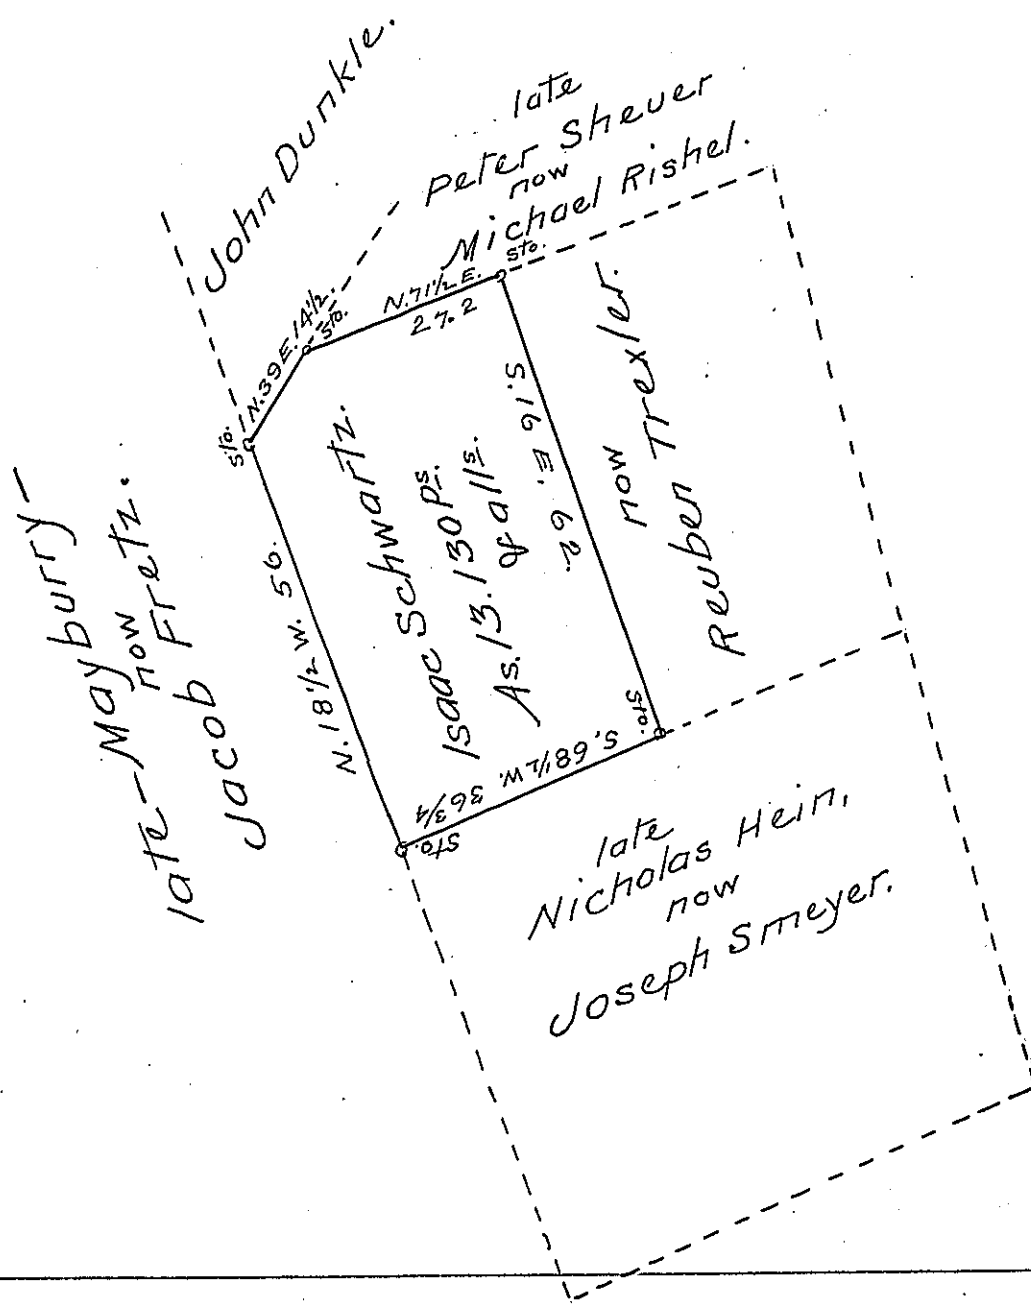 John Dunkle.
late
Peter Sheuer
now
Michael Rishel.
late-Mayburry-
now
Jacob Fretz.
Sto.
N.39E. 14½.
Sto.
N.71½ E.
27.2
Sto.
N. 18½ W. 56.
Isaac Schwartz.
As. 13. 130 Ps.
& alls.
S. 16 E. 62.
now
Reuben Trexler.
Sto.
S. 68½ W. 36 3/4
Sto.
late
Nicholas Hein,
now
Joseph Smeyer.